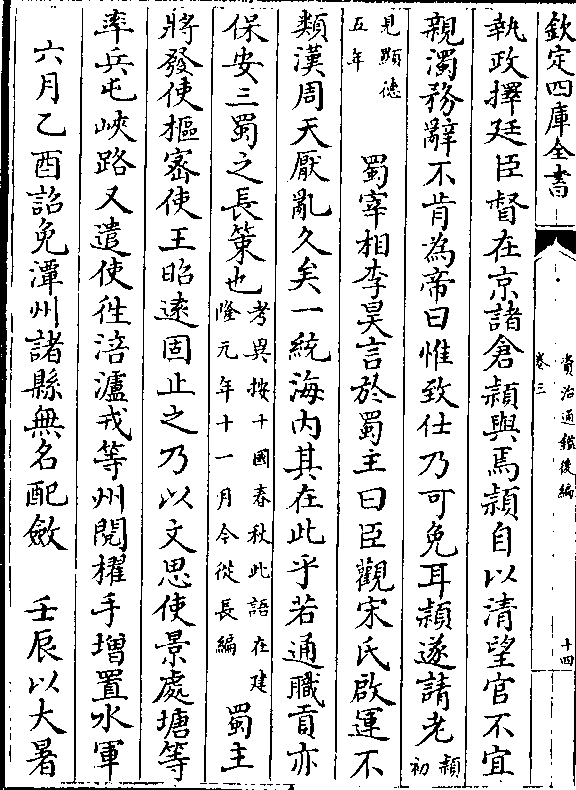 欽定四庫全書
資治通鑑後編
卷三
十四
執政擇廷臣督在京諸倉頴與焉頴自以清望官不宜
親濁務辭不肯為帝曰惟致仕乃可免耳頴遂請老頴初
見顯德五年 蜀宰相李昊言於蜀主曰臣觀宋氏啟運不
類漢周天厭亂久矣一統海内其在此乎若通職貢亦
保安三蜀之長策也考異按十國春秋此語在建隆元年十一月今從長編 蜀主
將發使樞密使王昭逺固止之乃以文思使景處塘等
率兵屯峽路又遣使徃涪瀘戎等州閱櫂手增置水軍
六月乙酉詔免潭州諸縣無名配斂 壬辰以大暑